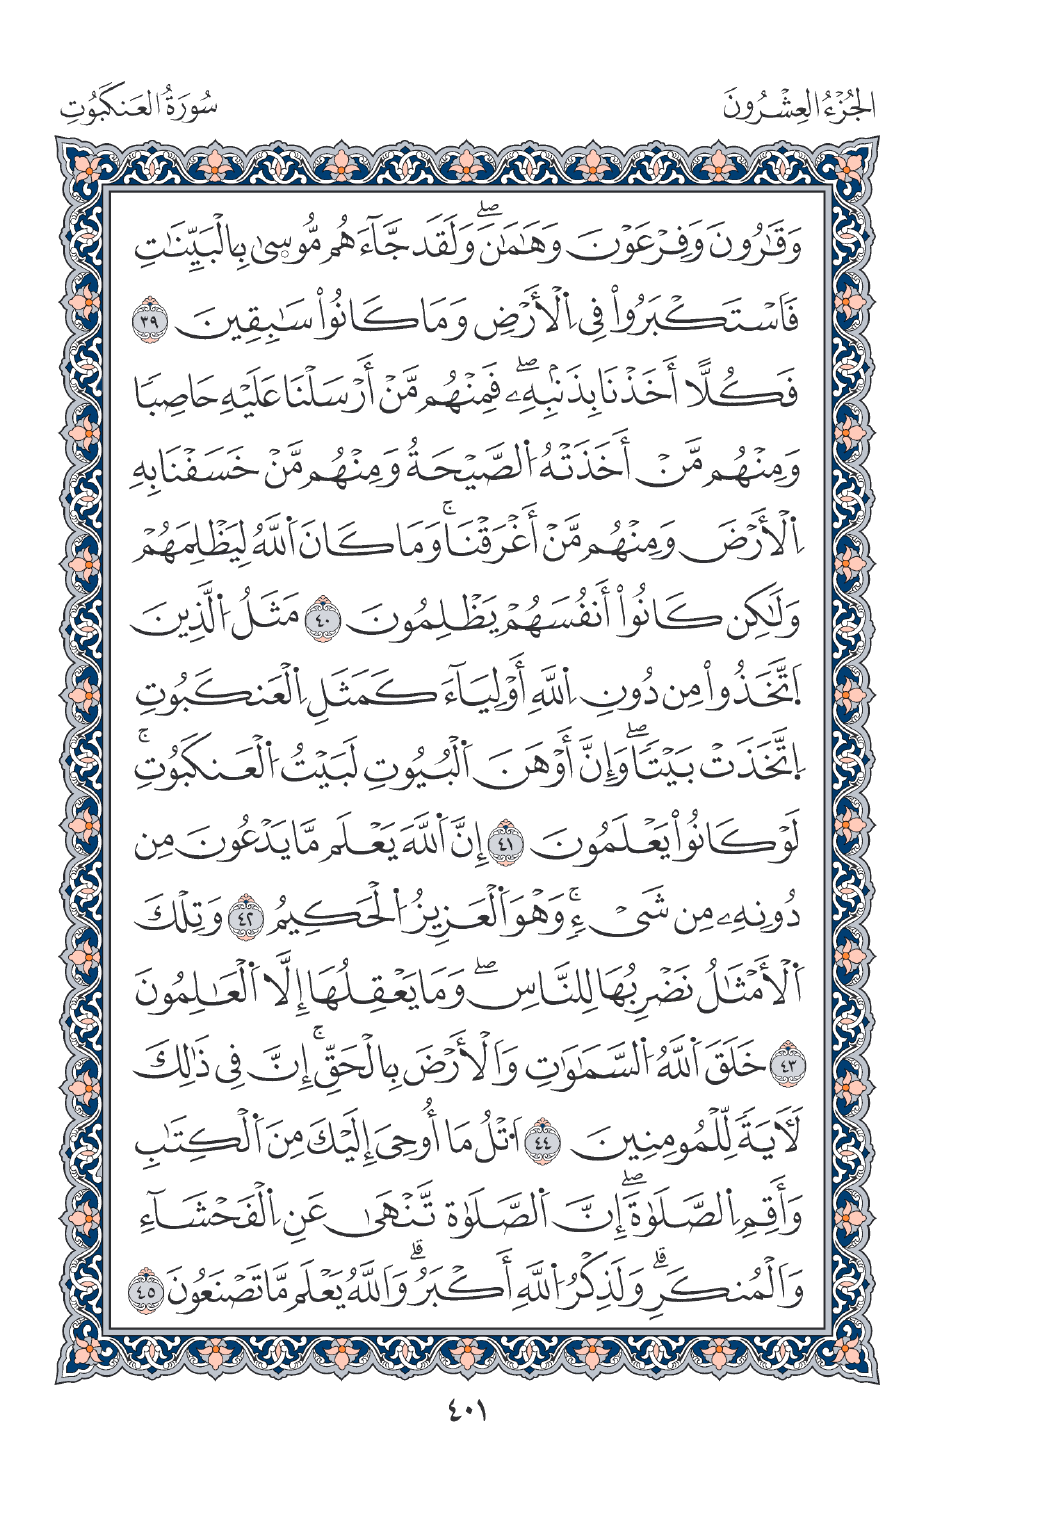 الجُزْءُ العِشْرُونَ
سُورَةُ العَنكَبُوتِ
وَقَٰرُونَ وَفِرْعَوْنَ وَهَٰمَٰنَۖ وَلَقَد جَّآءَهُم مُّوسٜىٰ بِالْبَيِّنَٰتِ
فَاسْتَكْبَرُواْ فِي اِ۬لْأَرْضِ وَمَا كَانُواْ سَٰبِقِينَ ٣٩
فَكُلًّا أَخَذْنَا بِذَنۢبِهِۦۖ فَمِنْهُم مَّنْ أَرْسَلْنَا عَلَيْهِ حَاصِبٗا
وَمِنْهُم مَّنْ أَخَذَتْهُ اُ۬لصَّيْحَةُ وَمِنْهُم مَّنْ خَسَفْنَا بِهِ
اِ۬لْأَرْضَ وَمِنْهُم مَّنْ أَغْرَقْنَاۚ وَمَا كَانَ اَ۬للَّهُ لِيَظْلِمَهُمْ
وَلَٰكِن كَانُواْ أَنفُسَهُمْ يَظْلِمُونَ ٤٠ مَثَلُ اُ۬لَّذِينَ
اَ۪تَّخَذُواْ مِن دُونِ اِ۬للَّهِ أَوْلِيَآءَ كَمَثَلِ اِ۬لْعَنكَبُوتِ
اِ۪تَّخَذَتْ بَيْتٗاۖ وَإِنَّ أَوْهَنَ اَ۬لْبُيُوتِ لَبَيْتُ اُ۬لْعَنكَبُوتِۚ
لَوْ كَانُواْ يَعْلَمُونَ ٤١ إِنَّ اَ۬للَّهَ يَعْلَم مَّا يَدْعُونَ مِن
دُونِهِۦ مِن شَيْءٖۚ وَهْوَ اَ۬لْعَزِيزُ اُ۬لْحَكِيمُ ٤٢ وَتِلْكَ
اَ۬لْأَمْثَٰلُ نَضْرِبُهَا لِلنَّاسِۖ وَمَا يَعْقِلُهَا إِلَّا اَ۬لْعَٰلِمُونَ
٤٣ خَلَقَ اَ۬للَّهُ اُ۬لسَّمَٰوَٰتِ وَالْأَرْضَ بِالْحَقِّۚ إِنَّ فِي ذَٰلِكَ
لَأٓيَةٗ لِّلْمُومِنِينَ ٤٤ اَ۟تْلُ مَا أُوحِيَ إِلَيْكَ مِنَ اَ۬لْكِتَٰبِ
وَأَقِمِ اِ۬لصَّلَوٰةَۖ إِنَّ اَ۬لصَّلَوٰة تَّنْهَىٰ عَنِ اِ۬لْفَحْشَآءِ
وَالْمُنكَرِۗ وَلَذِكْرُ اُ۬للَّهِ أَكْبَرُۗ وَاللَّهُ يَعْلَم مَّا تَصْنَعُونَ ٤٥
٤٠١